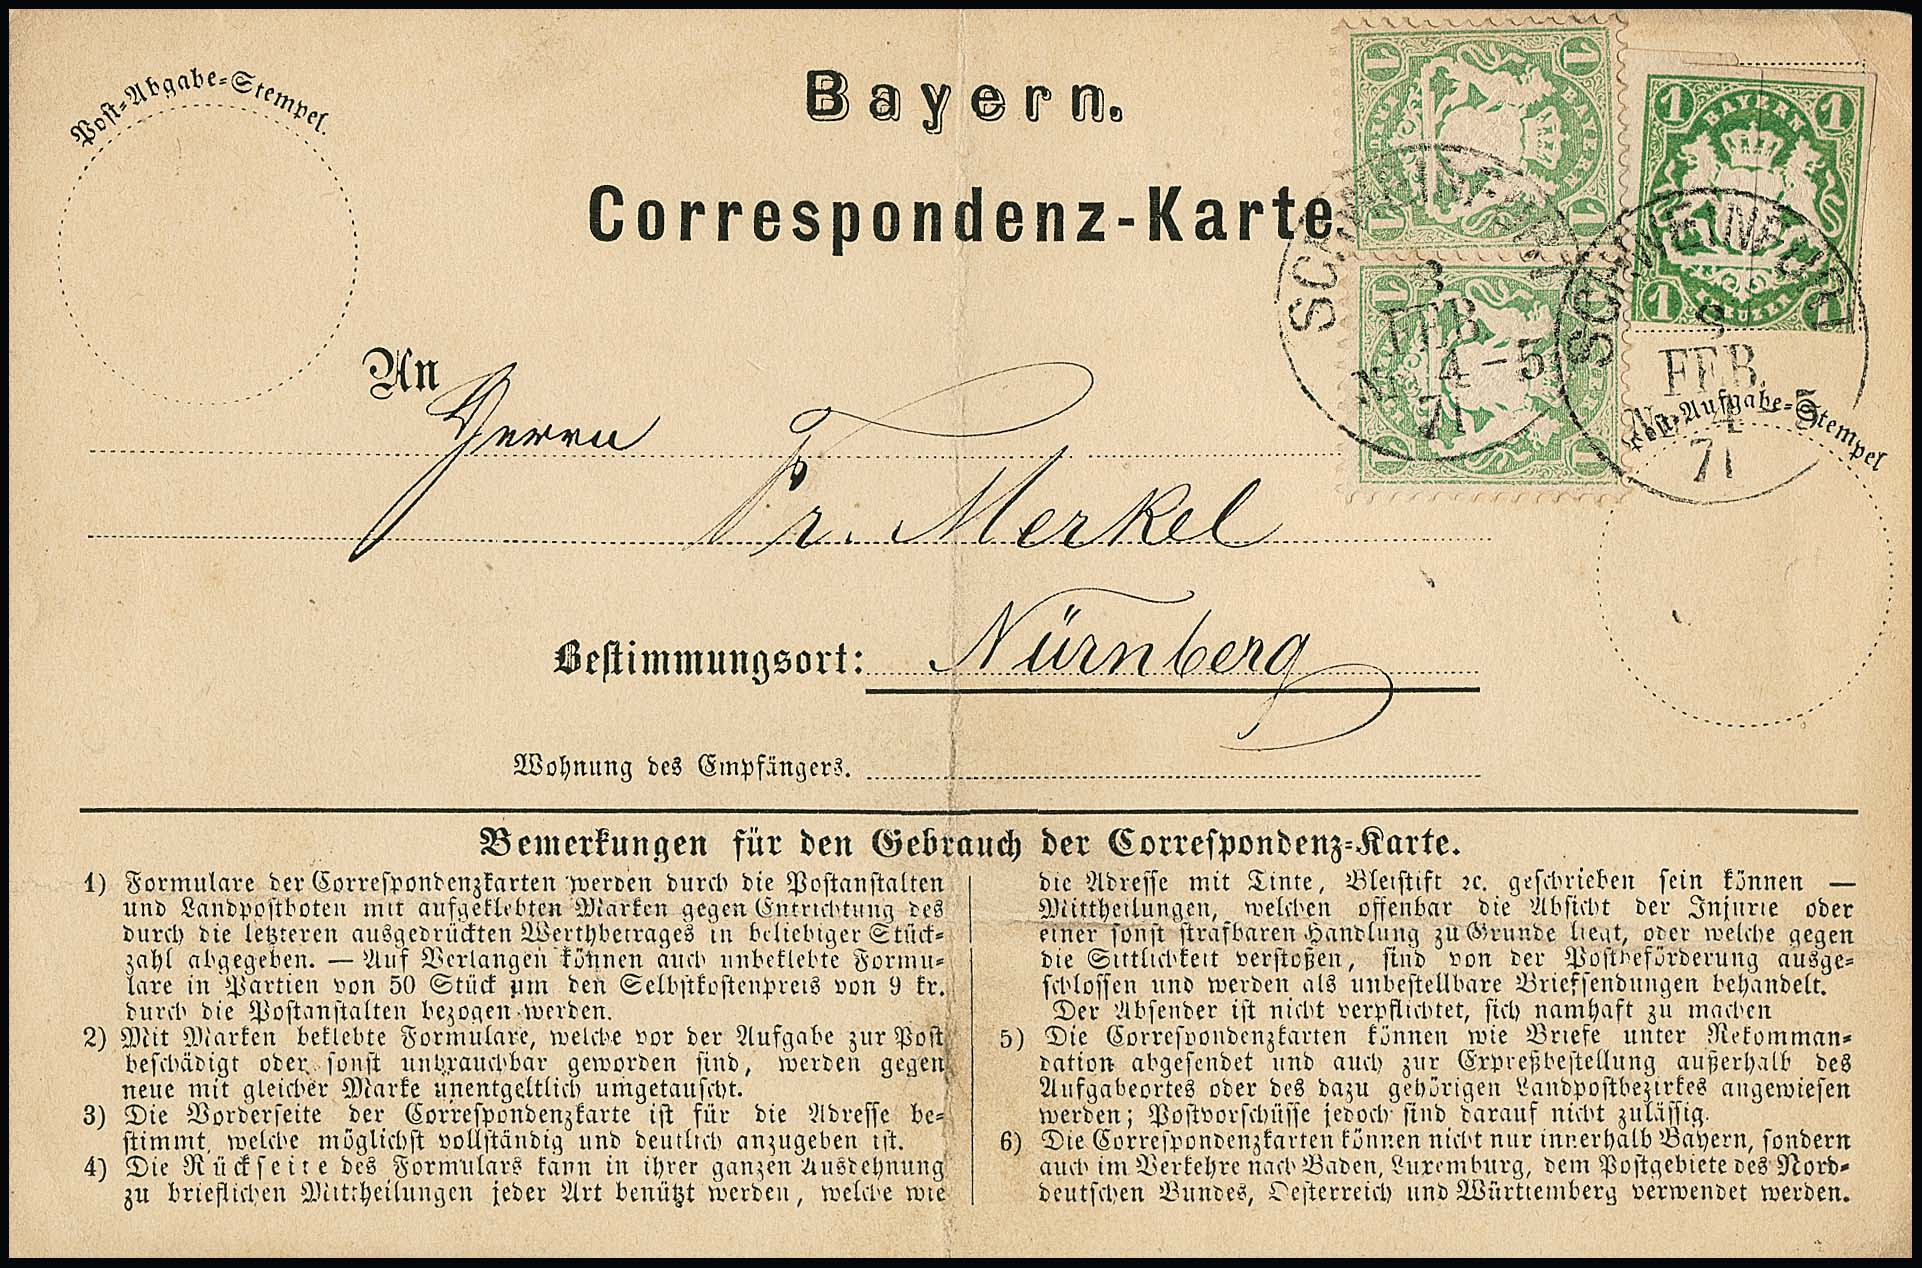 Post-Abgabe-Stempel.
Bayern.
Correspondenz-Karte
1 1
BAYERN
KREUZER
1 1
1 1
BAYERN
1 1
1 1
1 1
SCHWEINFURT
8
FEB.
Nm. 4-5
71
SCHWEINFURT
8
FEB.
Nm. 4-5
71
Aufgabe-Stempel
An Herrn
Fr. Merkel
Bestimmungsort: Nürnberg
Wohnung des Empfängers.
Bemerkungen für den Gebrauch der Correspondenz-Karte.
1) Formulare der Correspondenzkarten werden durch die Postanstalten
und Landpostboten mit aufgeklebten Marken gegen Entrichtung des
durch die letzteren ausgedrückten Werthbetrages in beliebiger Stück-
zahl abgegeben. — Auf Verlangen können auch unbeklebte Formu-
lare in Partien von 50 Stück um den Selbstkostenpreis von 9 kr.
durch die Postanstalten bezogen werden.
2) Mit Marken beklebte Formulare, welche vor der Aufgabe zur Post
beschädigt oder sonst unbrauchbar geworden sind, werden gegen
neue mit gleicher Marke unentgeltlich umgetauscht.
3) Die Vorderseite der Correspondenzkarte ist für die Adresse be-
stimmt, welche möglichst vollständig und deutlich anzugeben ist.
4) Die Rückseite des Formulars kann in ihrer ganzen Ausdehnung
zu brieflichen Mittheilungen jeder Art benützt werden, welche wie
die Adresse mit Tinte, Bleistift ꝛc. geschrieben sein können —
Mittheilungen, welchen offenbar die Absicht der Injurie oder
einer sonst strafbaren Handlung zu Grunde liegt, oder welche gegen
die Sittlichkeit verstoßen, sind von der Postbeförderung ausge-
schlossen und werden als unbestellbare Briefsendungen behandelt.
Der Absender ist nicht verpflichtet, sich namhaft zu machen
5) Die Correspondenzkarten können wie Briefe unter Rekomman-
dation abgesendet und auch zur Expreßbestellung außerhalb des
Aufgabeortes oder des dazu gehörigen Landpostbezirkes angewiesen
werden; Postvorschüsse jedoch sind darauf nicht zulässig.
6) Die Correspondenzkarten können nicht nur innerhalb Bayern, sondern
auch im Verkehre nach Baden, Luxemburg, dem Postgebiete des Nord-
deutschen Bundes, Oesterreich und Württemberg verwendet werden.